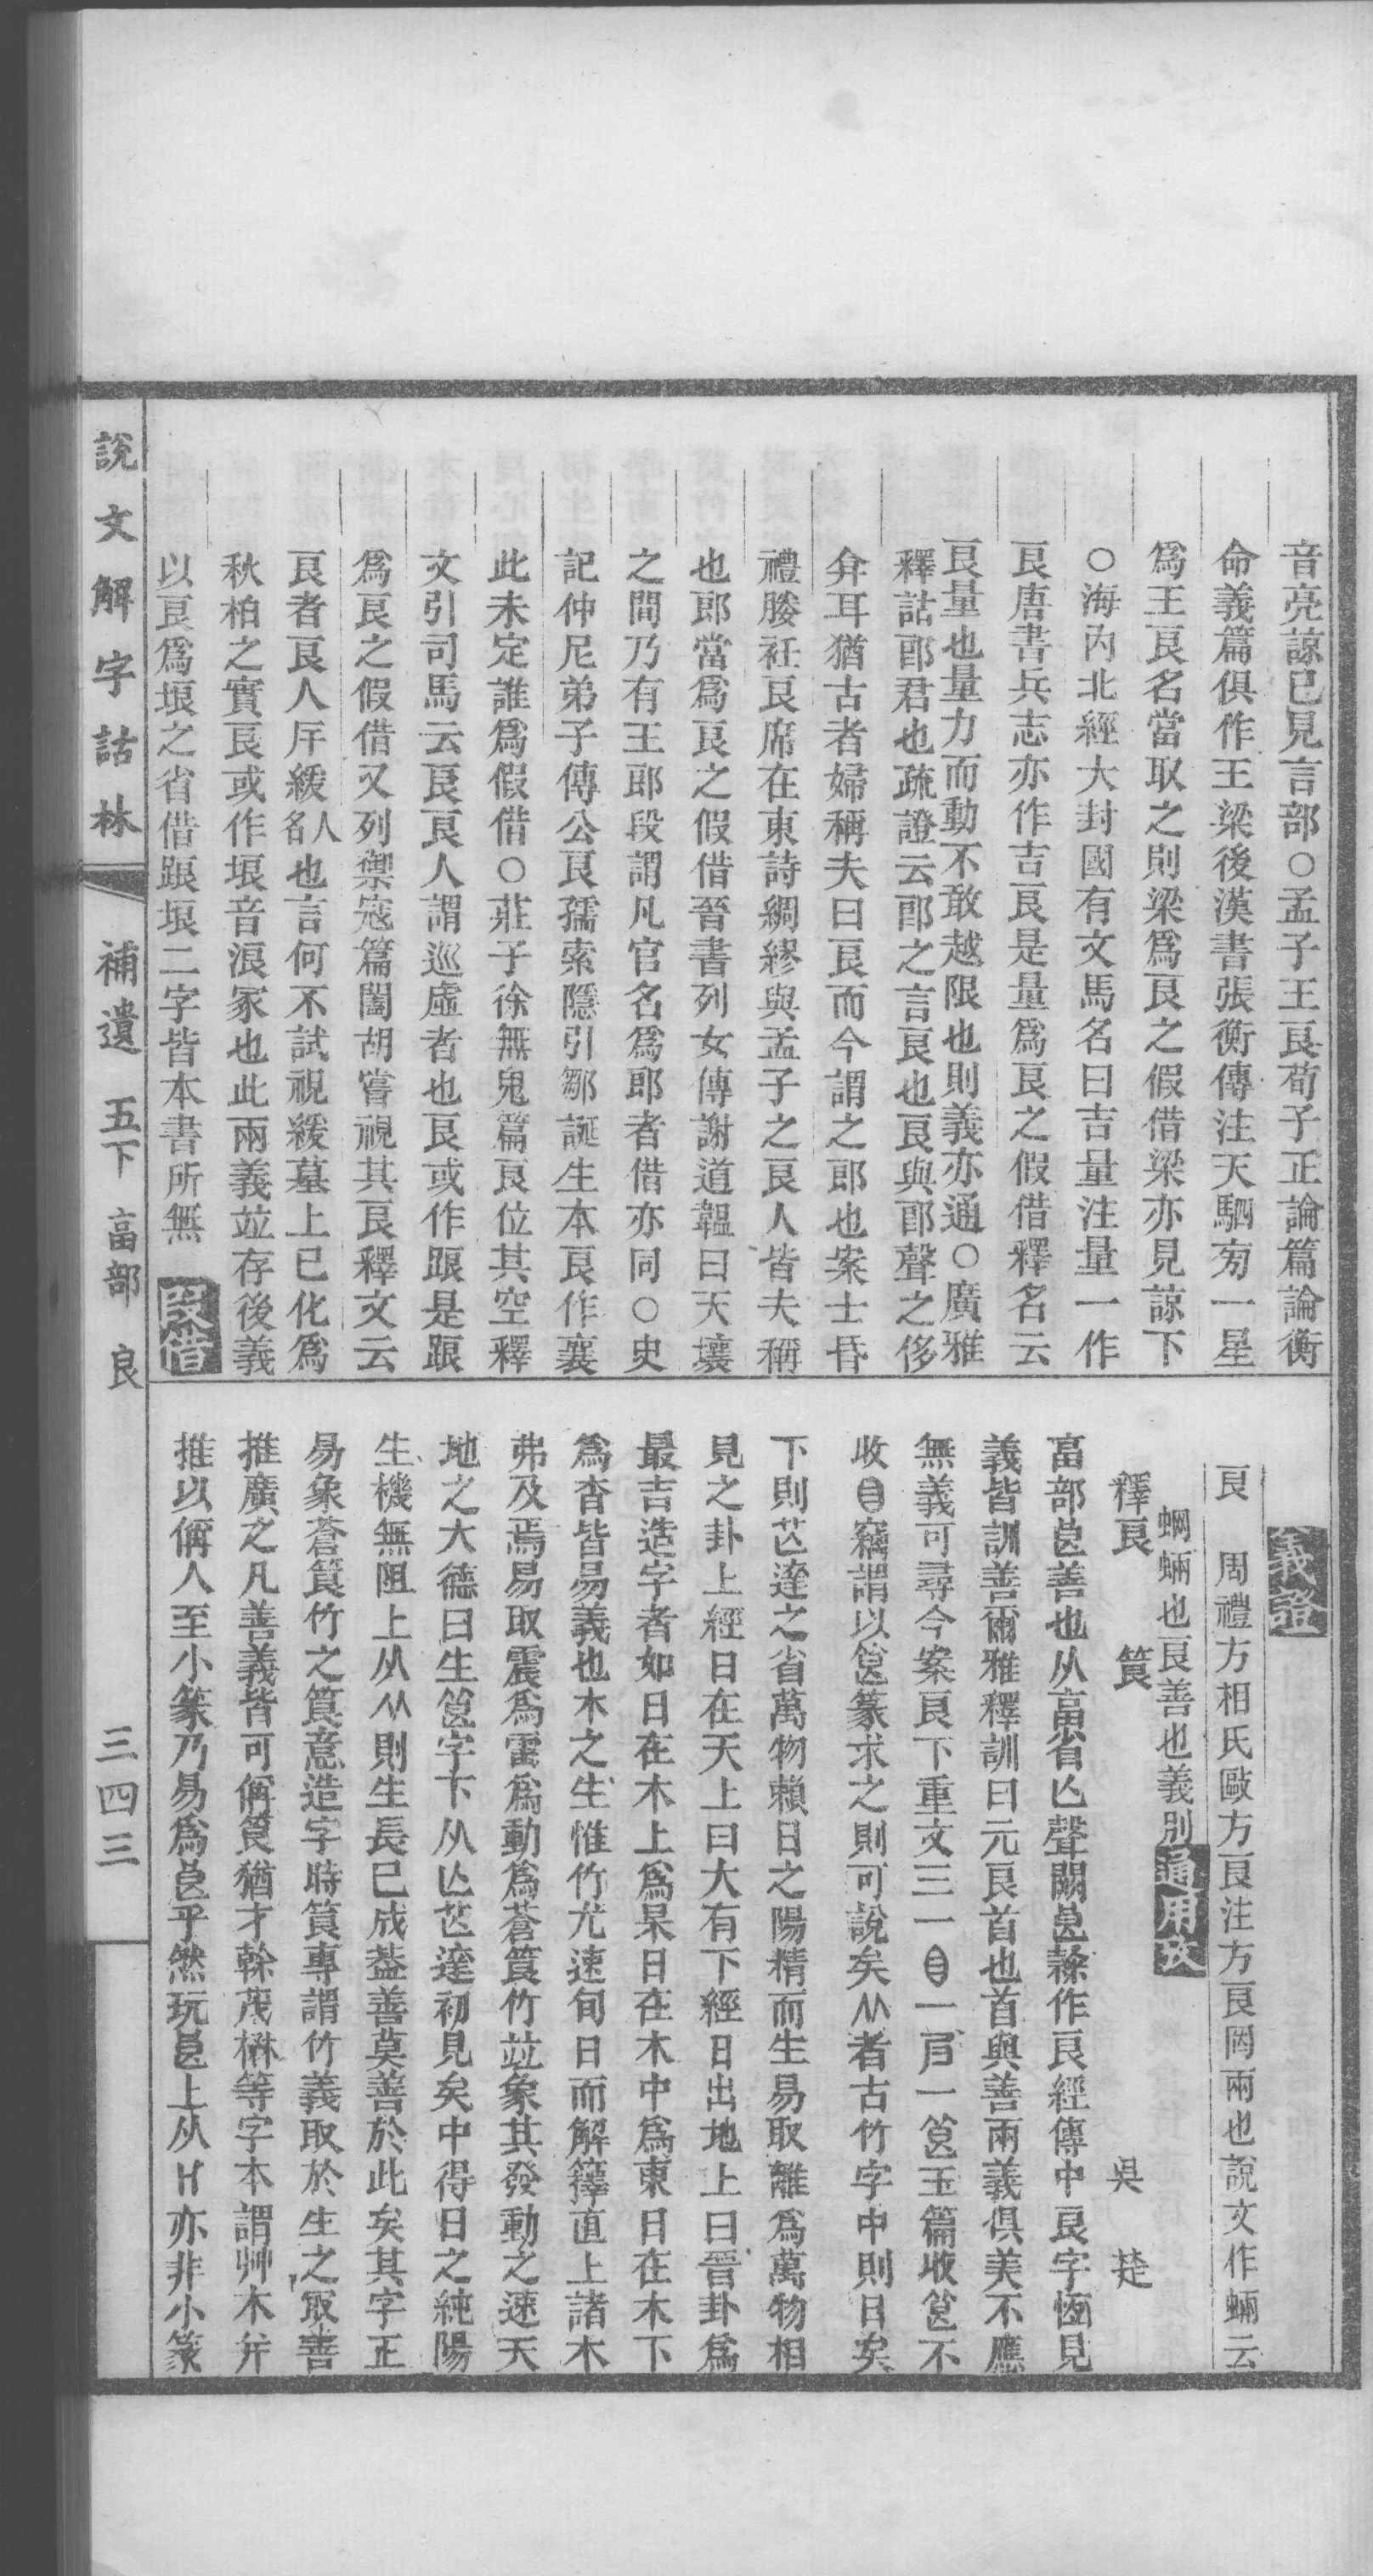 音亮諒已見言部○孟子王良荀子正論篇論衡
命義篇俱作王梁後漢書張衡傳注天駟㫄一星
爲王良名當取之則梁爲良之假借梁亦見諒下
○海內北經大封國有文馬名曰吉量注量一作
良唐書兵志亦作吉良是量爲良之假借釋名云
良量也量力而動不敢越限也則義亦通○廣雅
釋詁郎君也疏證云郎之言良也良與郎聲之侈
弇耳猶古者婦稱夫曰良而今謂之郎也案士昏
禮媵衽良席在東詩綢繆與孟子之良人皆夫稱
也郎當爲良之假借晉書列女傳謝道韞曰天壤
之間乃有王郎段謂凡官名爲郎者借亦同○史
記仲尼弟子傳公良孺索隱引鄒誕生本良作襄
此未定誰爲假借○莊子徐無鬼篇良位其空釋
文引司馬云良良人謂巡虛者也良或作踉是踉
爲良之假借又列禦寇篇闔胡嘗視其良釋文云
良者良人斥緩人名也言何不試視緩墓上已化爲
秋柏之實良或作埌音浪冢也此兩義竝存後義
以良爲埌之省借踉埌二字皆本書所無
義證
良　周禮方相氏毆方良注方良罔兩也說文作蜽云
蝄蜽也良善也義別
釋良　筤　吳楚
畗部㫐善也从畗省亾聲闕㫐隸作良經傳中良字恆見
義皆訓善爾雅釋訓曰元良首也首與善兩義俱美不應
無義可尋今案良下重文三一一一玉篇收不
收竊謂以篆求之則可說矣者古竹字中則日矣
下則達之省萬物賴日之陽精而生易取離爲萬物相
見之卦上經日在天上曰大有下經日出地上曰晉卦爲
最吉造字者如日在木上爲杲日在木中爲東日在木下
爲杳皆易義也木之生惟竹尤速旬日而解籜直上諸木
弗及焉易取震爲雷爲動爲蒼筤竹竝象其發動之速天
地之大德曰生字下从亾達初見矣中得日之純陽
生機無阻上从則生長已成葢善莫善於此矣其字正
易象蒼筤竹之筤意造字時筤專謂竹義取於生之取善
推廣之凡善義皆可偁筤猶才榦茂楙等字本謂艸木弁
推以偁人至小篆乃易爲㫐乎然玩㫐上从亦非小篆
說文解字詁林　補遺　五下　畗部　良　三四三